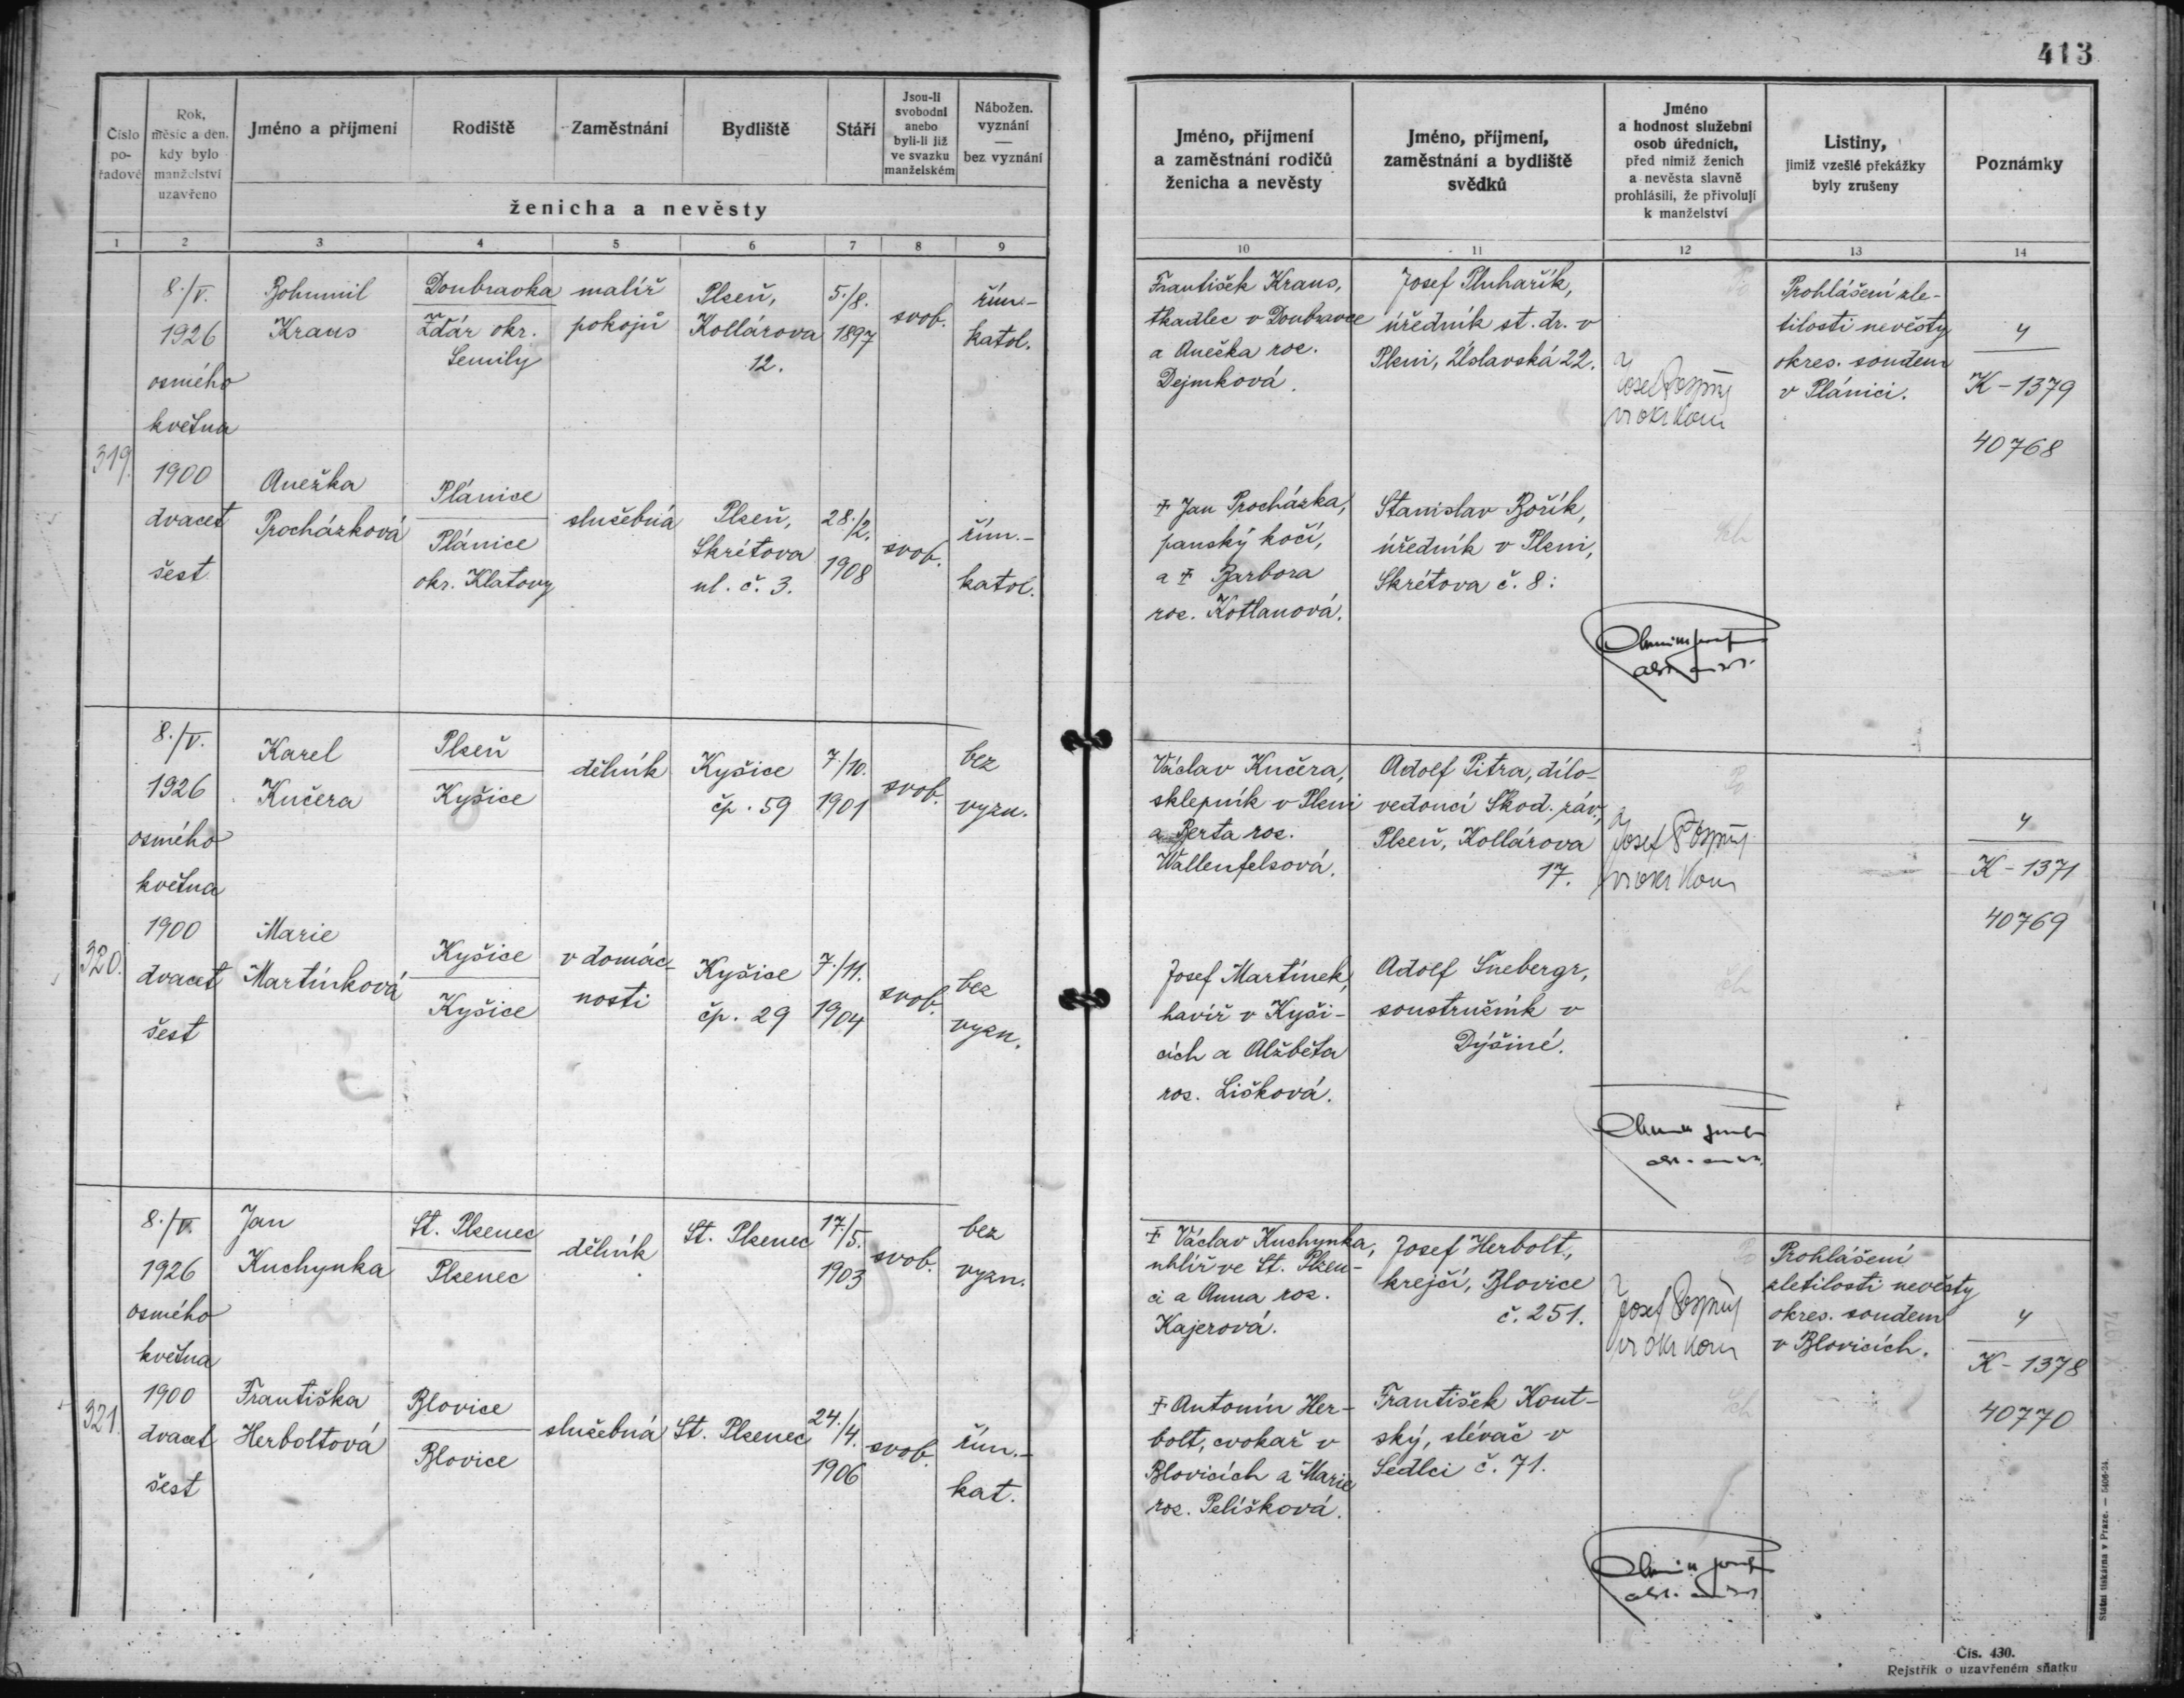 413
Číslo pořadové
Rok, měsíc a den, kdy bylo manželství uzavřeno
Jméno a příjmení
Rodiště
Zaměstnání
Bydliště
Stáří
Jsou-li svobodni anebo byli-li již ve svazku manželském
Nábožen. vyznání — bez vyznání
ženicha a nevěsty
Jméno, příjmení a zaměstnání rodičů ženicha a nevěsty
Jméno, příjmení, zaměstnání a bydliště svědků
Jméno a hodnost služební osob úředních, před nimiž ženich a nevěsta slavně prohlásili, že přivolují k manželství
Listiny, jimiž vzešlé překážky byly zrušeny
Poznámky
1 2 3 4 5 6 7 8 9 10 11 12 13 14
319.
8./V.
1926
osmého
května
1900
dvacet
šest
Bohumil
Kraus
Doubravka
Žďár okr.
Semily
malíř
pokojů
Plzeň,
Kollárova
12.
5./8.
1897
svob.
řím.-
katol.
František Kraus,
tkadlec v Doubravce
a Anežka roz.
Dejmková.
Josef Pluhařík,
úředník st. dr. v
Plzni, Úslavská 22.
Prohlášení zle-
tilosti nevěsty
okres. soudem
v Plánici.
4
K-1379
40768
Anežka
Procházková
Plánice
Plánice
okr. Klatovy
služebná
Plzeň,
Skrétova
ul. č. 3.
28./2.
1908
svob.
řím.-
katol.
† Jan Procházka,
panský kočí,
a † Barbora
roz. Kotlanová.
Stanislav Bořík,
úředník v Plzni,
Skrétova č. 8.
320.
8./V.
1926
osmého
května
1900
dvacet
šest
Karel
Kučera
Plzeň
Kyšice
dělník
Kyšice
čp. 59
7./10.
1901
svob.
bez
vyzn.
Václav Kučera,
sklepník v Plzni
a Berta roz.
Wallenfelsová.
Adolf Pitra, dílo-
vedoucí Škod. záv.,
Plzeň, Kollárova
17.
Josef
4
K-1371
40769
Marie
Martínková
Kyšice
Kyšice
v domác-
nosti
Kyšice
čp. 29
7./11.
1904
svob.
bez
vyzn.
Josef Martínek,
havíř v Kyši-
cích a Alžběta
roz. Lišková.
Adolf Šnebergr,
soustružník v
Dýšiné.
321.
8./V.
1926
osmého
května
1900
dvacet
šest
Jan
Kuchynka
St. Plzenec
Plzenec
dělník
St. Plzenec
17./5.
1903
svob.
bez
vyzn.
† Václav Kuchynka,
uhlíř ve St. Plzen-
ci a Anna roz.
Kajerová.
Josef Herbolt,
krejčí, Blovice
č. 251.
Josef
Prohlášení
zletilosti nevěsty
okres. soudem
v Blovicích.
4
K-1378
40770
Františka
Herboltová
Blovice
Blovice
služebná
St. Plzenec
24./4.
1906
svob.
řím.-
kat.
† Antonín Her-
bolt, cvokař v
Blovicích a Marie
roz. Pelíšková.
František Kout-
ský, slévač v
Sedlci č. 71.
Státní tiskárna v Praze. — 5406-24.
Čís. 430.
Rejstřík o uzavřeném sňatku